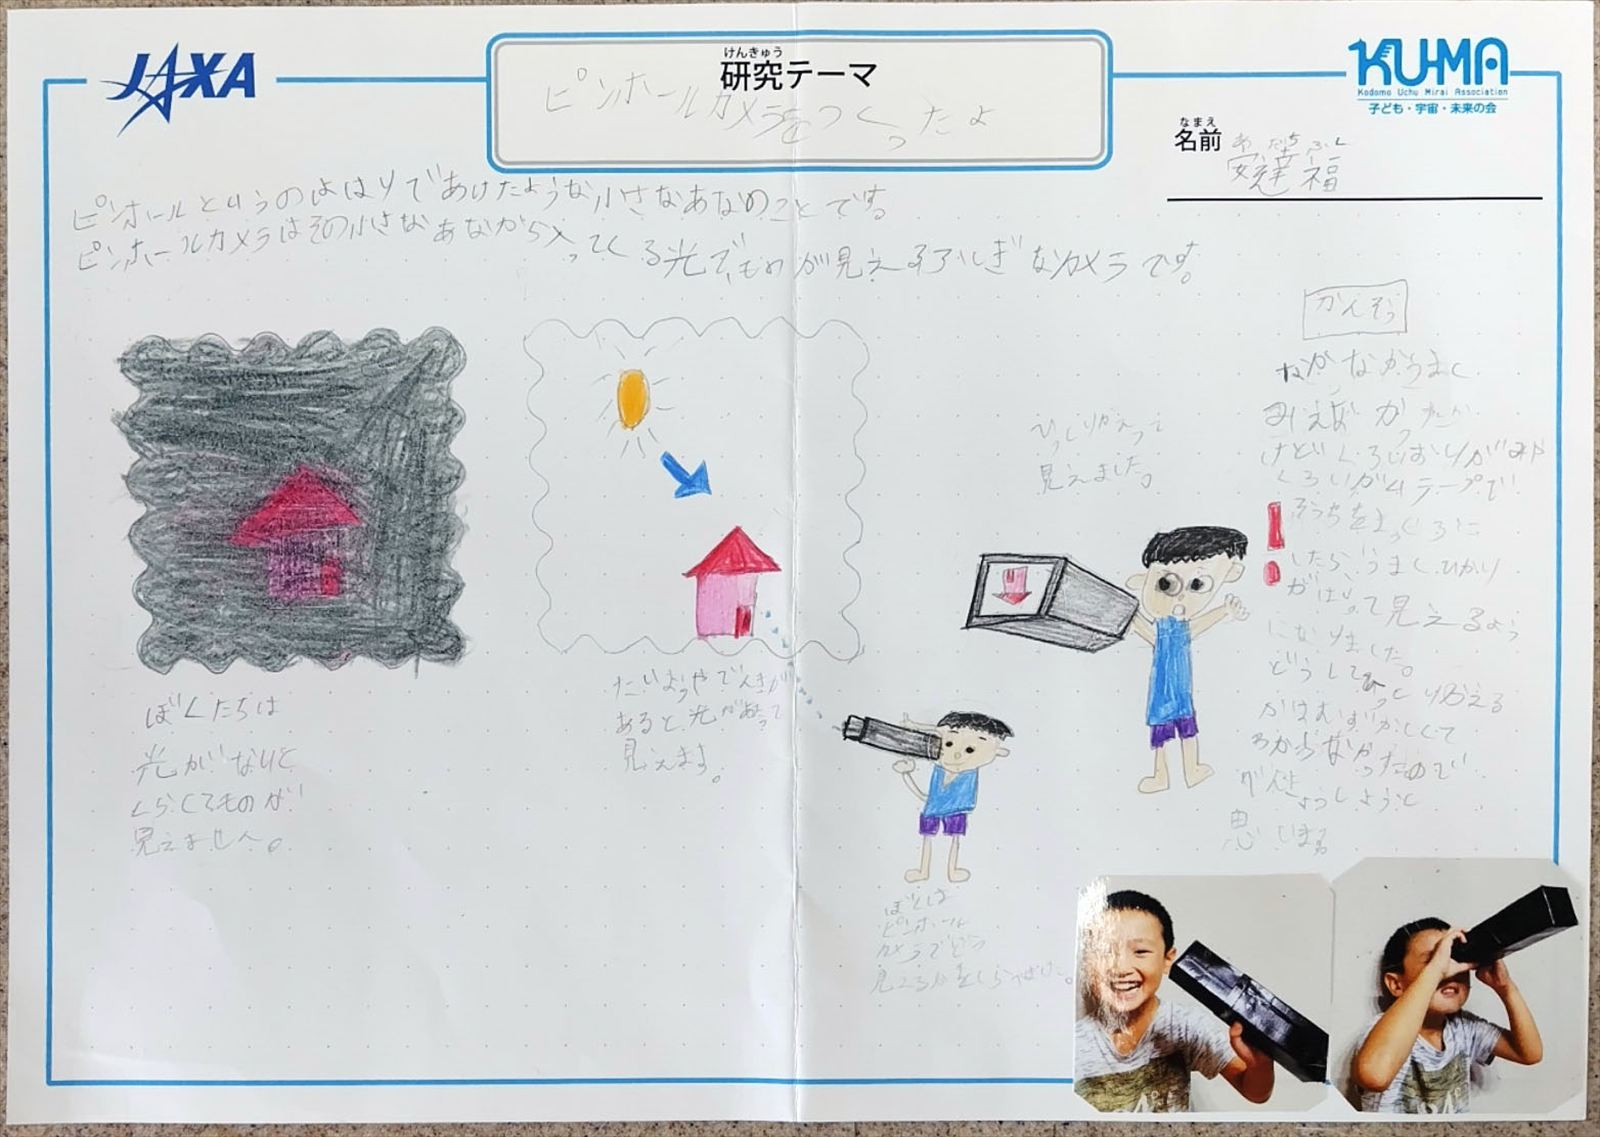 JAXA
けんきゅう
研究テーマ
ピンホールカメラをつくったよ
KU-MA
Kodomo Uchu Mirai Association
子ども・宇宙・未来の会
なまえ
名前
あだちふく
安達福
ピンホールというのははりであけたような小さなあなのことです
ピンホールカメラはその小さなあながら入ってくる光で、ものが見えるふしぎなカメラです。
ぼくたちは
光がないと
くらくてものが
見えません。
たいようやでんきが
あると光があって
見えます。
ぼくは
ピンホール
カメラでどう
見えるかをしらべた。
ひっくりかえって
見えました。
かんそう
なかなかうまく
みえなかった
けどくろいおりがみや
くろいガムテープで
そうちをまっくろに
したら、うまくひかり
がはいって見えるよう
になりました。
どうしてひっくり返える
かはむずかしくて
わからなかったので
べんきょうしようと
思います